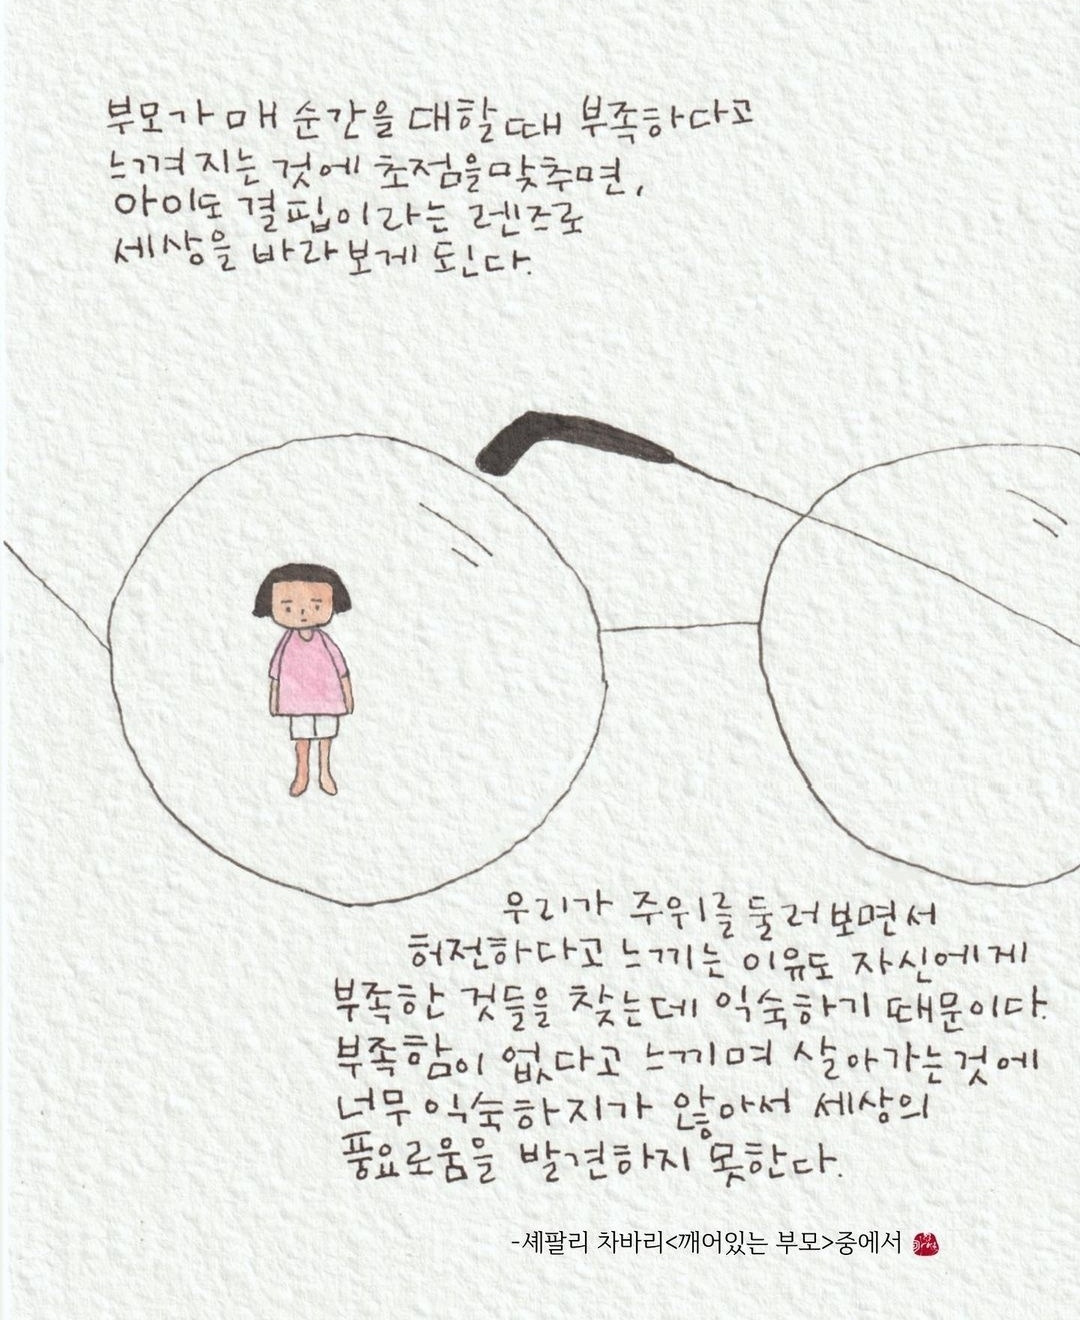 부모가 매 순간을 대할 때 부족하다고
느껴지는 것에 초점을 맞추면,
아이도 결핍이라는 렌즈로
세상을 바라보게 된다.
우리가 주위를 둘러보면서
허전하다고 느끼는 이유도 자신에게
부족한 것들을 찾는데 익숙하기 때문이다.
부족함이 없다고 느끼며 살아가는 것에
너무 익숙하지가 않아서 세상의
풍요로움을 발견하지 못한다.
-셰팔리 차바리<깨어있는 부모>중에서